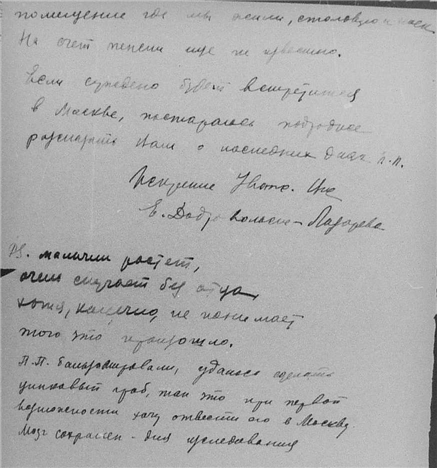 помещение где мы жили, столовую и
На счет пенсии еще не известно.
Если суждено будет встретиться
в Москве, постараюсь подробнее
рассказать Вам о последних днях П.П.
Искренне Уваж. Вас
Е. Добровольск – Лазарева
P.S. мальчик растет,
очень скучает без отца,
хотя, конечно, не понимает
того что произошло.
П.П. бальзамировали, удалось сделать
цинковый гроб, так что при первой
возможности хочу отвезти его в Москву
Мозг сохранен – для исследования